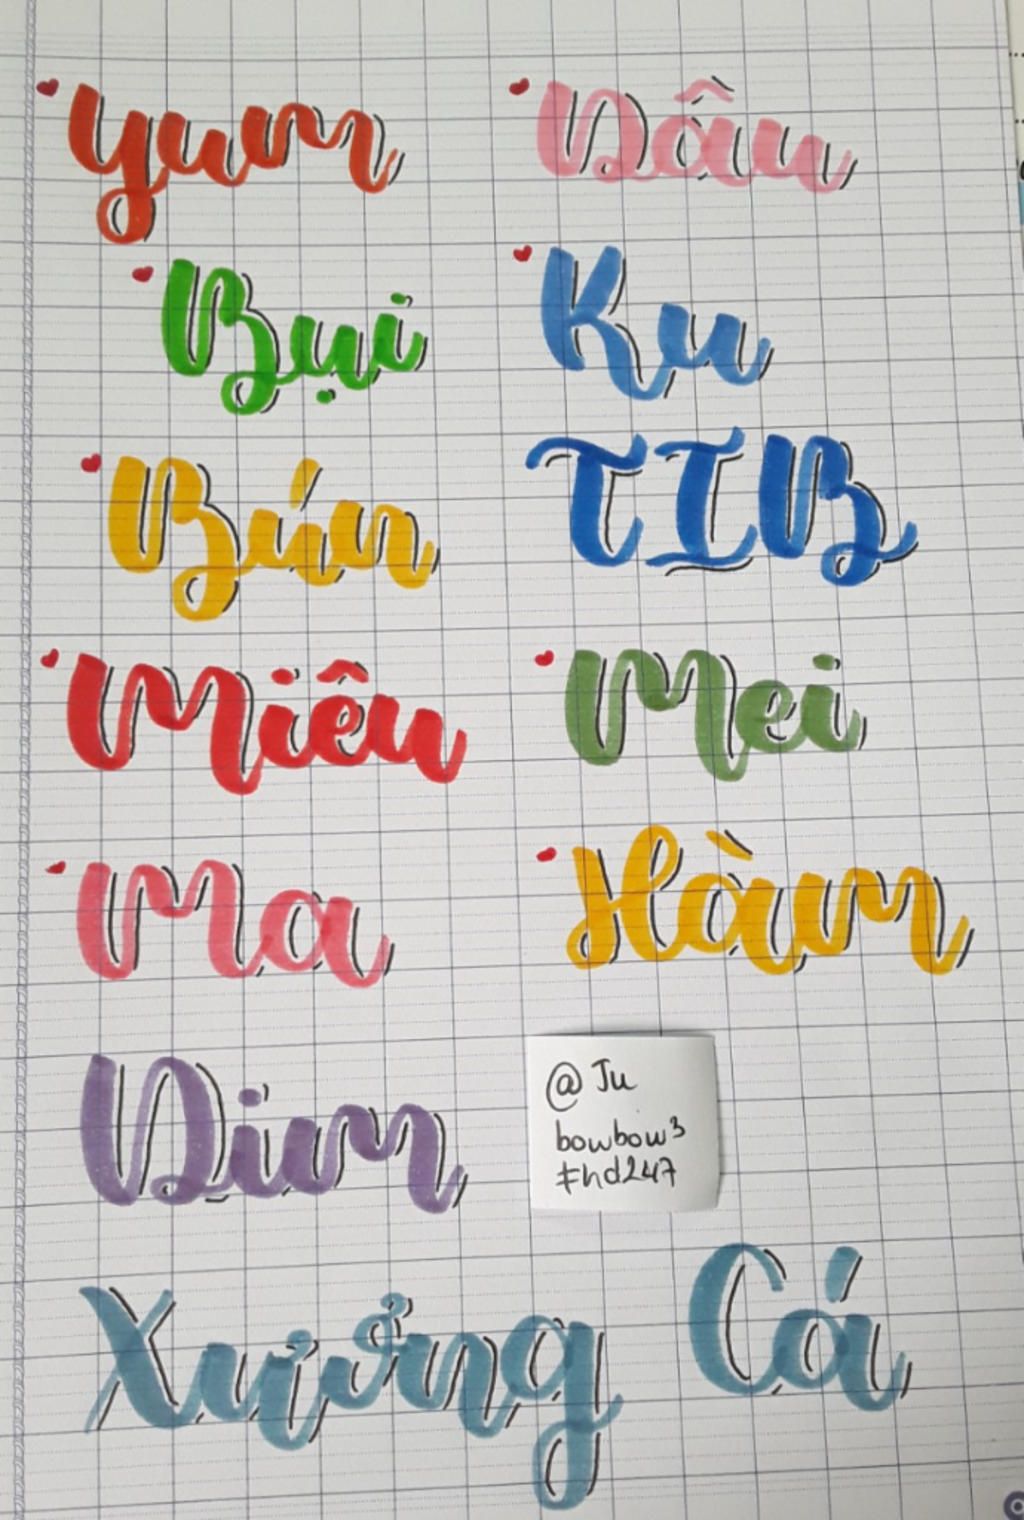 Yum Dâu
Bụi Ku
Bún TIB
Miêu Mei
Ma Hàm
Dim
@ Ju
bowbow3
#hd247
Xưởng Cá